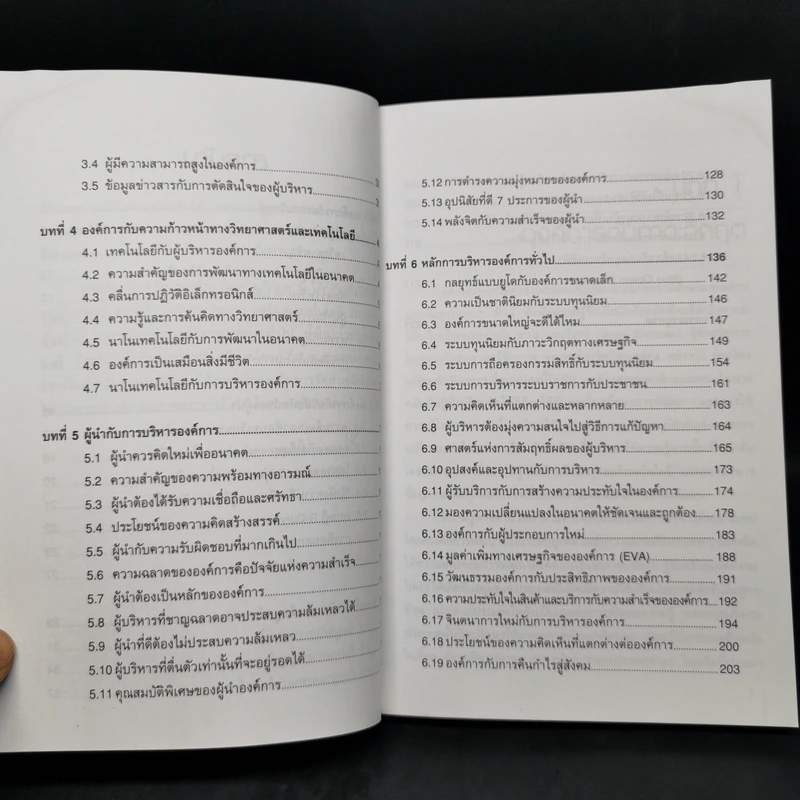 3.4 ผู้มีความสามารถสูงในองค์การ
3.5 ข้อมูลข่าวสารกับการตัดสินใจของผู้บริหาร
บทที่ 4 องค์การกับความก้าวหน้าทางวิทยาศาสตร์และเทคโนโลยี
4.1 เทคโนโลยีกับผู้บริหารองค์การ
4.2 ความสำคัญของการพัฒนาทางเทคโนโลยีในอนาคต
4.3 คลื่นการปฏิวัติอิเล็กทรอนิกส์
4.4 ความรู้และการค้นคิดทางวิทยาศาสตร์
4.5 นาโนเทคโนโลยีกับการพัฒนาในอนาคต
4.6 องค์การเป็นเสมือนสิ่งมีชีวิต
4.7 นาโนเทคโนโลยีกับการบริหารองค์การ
บทที่ 5 ผู้นำกับการบริหารองค์การ
5.1 ผู้นำควรคิดใหม่เพื่ออนาคต
5.2 ความสำคัญของความพร้อมทางอารมณ์
5.3 ผู้นำต้องได้รับความเชื่อถือและศรัทธา
5.4 ประโยชน์ของความคิดสร้างสรรค์
5.5 ผู้นำกับความรับผิดชอบที่มากเกินไป
5.6 ความฉลาดขององค์การคือปัจจัยแห่งความสำเร็จ
5.7 ผู้นำต้องเป็นหลักขององค์การ
5.8 ผู้บริหารที่ชาญฉลาดอาจประสบความล้มเหลวได้
5.9 ผู้นำที่ดีต้องไม่ประสบความล้มเหลว
5.10 ผู้บริหารที่ตื่นตัวเท่านั้นที่จะอยู่รอดได้
5.11 คุณสมบัติพิเศษของผู้นำองค์การ
5.12 การดำรงความมุ่งหมายขององค์การ 128
5.13 อุปนิสัยที่ดี 7 ประการของผู้นำ 130
5.14 พลังจิตกับความสำเร็จของผู้นำ 132
บทที่ 6 หลักการบริหารองค์การทั่วไป 136
6.1 กลยุทธ์แบบยูโดกับองค์การขนาดเล็ก 142
6.2 ความเป็นชาตินิยมกับระบบทุนนิยม 146
6.3 องค์การขนาดใหญ่จะดีได้ไหม 147
6.4 ระบบทุนนิยมกับภาวะวิกฤตทางเศรษฐกิจ 149
6.5 ระบบการถือครองกรรมสิทธิ์กับระบบทุนนิยม 154
6.6 ระบบการบริหารระบบราชการกับประชาชน 161
6.7 ความคิดเห็นที่แตกต่างและหลากหลาย 163
6.8 ผู้บริหารต้องมุ่งความสนใจไปสู่วิธีการแก้ปัญหา 164
6.9 ศาสตร์แห่งการสัมฤทธิ์ผลของผู้บริหาร 165
6.10 อุปสงค์และอุปทานกับการบริหาร 173
6.11 ผู้รับบริการกับการสร้างความประทับใจในองค์การ 174
6.12 มองความเปลี่ยนแปลงในอนาคตให้ชัดเจนและถูกต้อง 178
6.13 องค์การกับผู้ประกอบการใหม่ 183
6.14 มูลค่าเพิ่มทางเศรษฐกิจขององค์การ (EVA) 188
6.15 วัฒนธรรมองค์การกับประสิทธิภาพขององค์การ 191
6.16 ความประทับใจในสินค้าและบริการกับความสำเร็จขององค์การ 192
6.17 จินตนาการใหม่กับการบริหาร 194
6.18 ประโยชน์ของความคิดเห็นที่แตกต่างต่อองค์การ 200
6.19 องค์การกับการคืนกำไรสู่สังคม 203